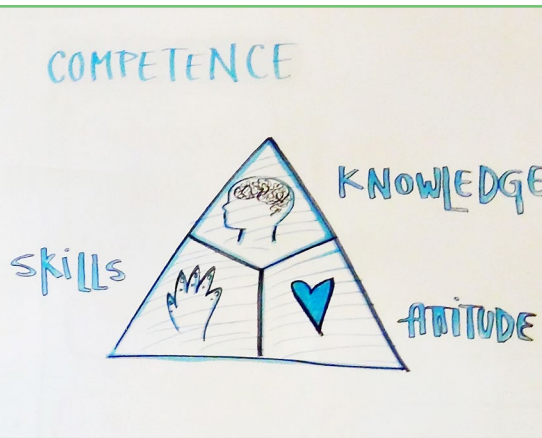 COMPETENCE
KNOWLEDGE
SKiLLS
ATTiTUDE